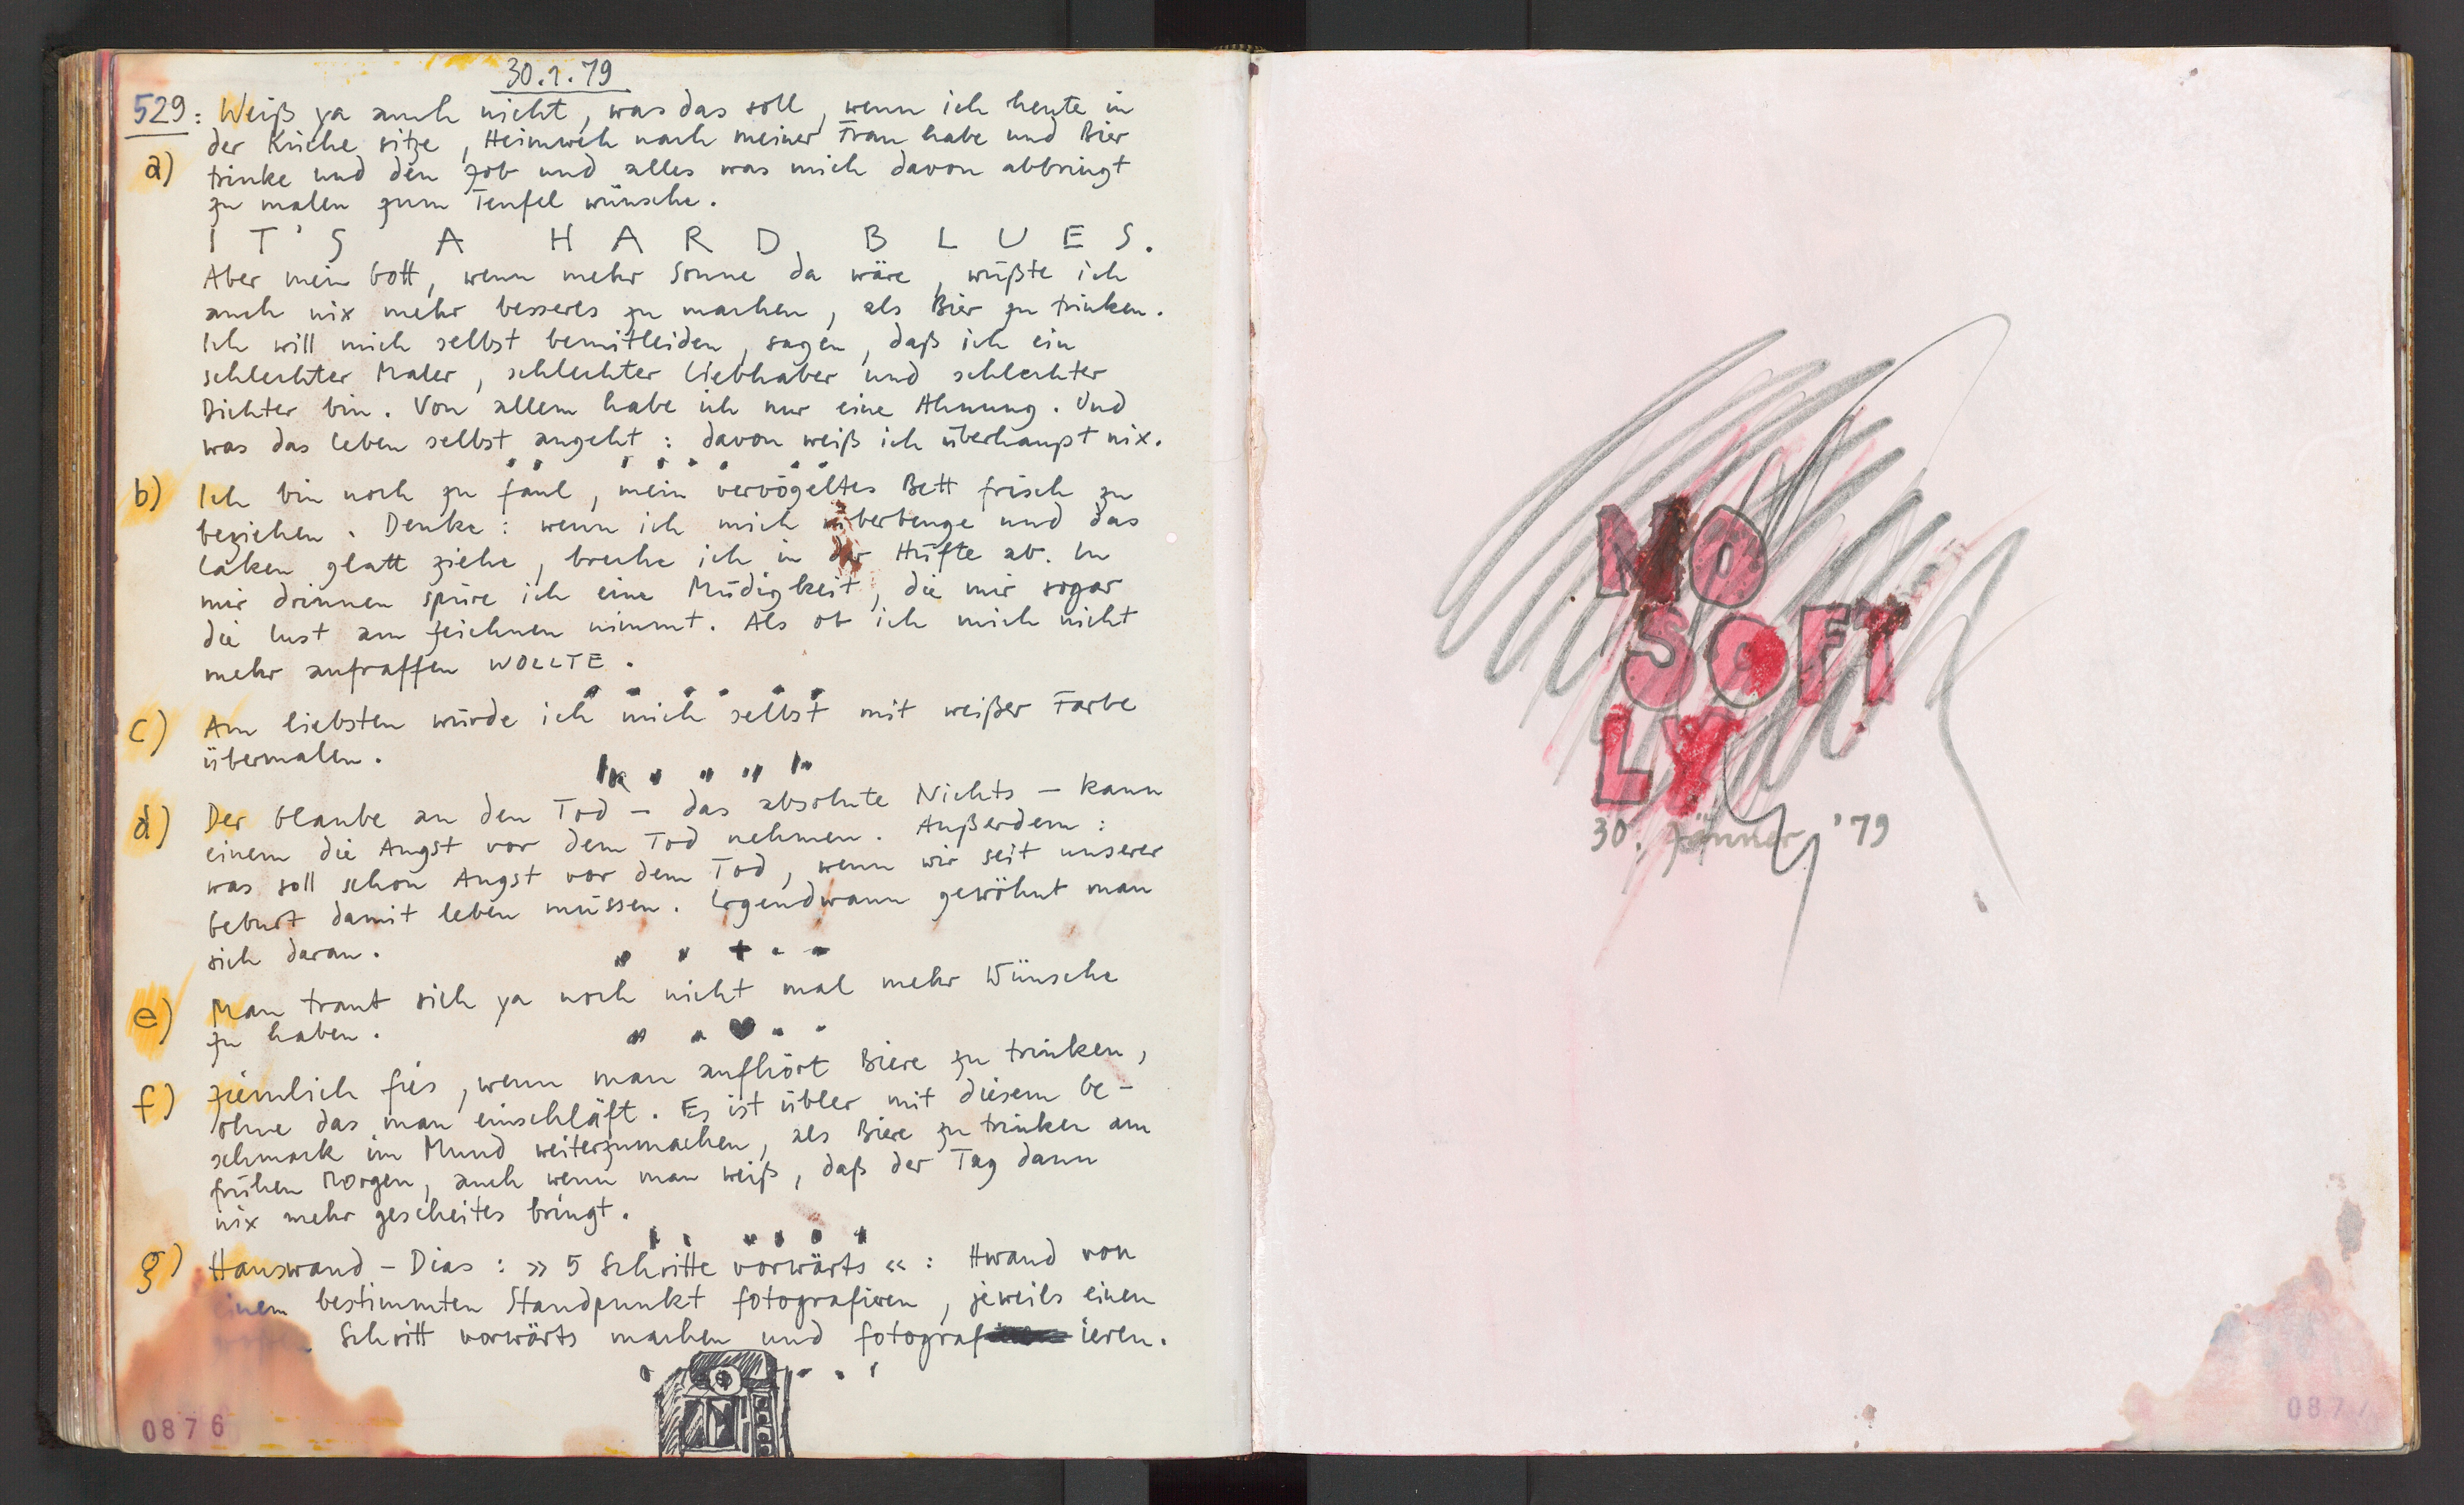 30.1.79
529: Weiß ja auch nicht, was das soll, wenn ich heute in
der Küche sitze, Heimweh nach meiner Frau habe und Bier
a) trinke und den Job und alles was mich davon abbringt
zu malen zum Teufel wünsche.
IT'S A HARD BLUES.
Aber mein Gott, wenn mehr Sonne da wäre, wüßte ich
auch nix mehr besseres zu machen, als Bier zu trinken.
Ich will mich selbst bemitleiden, sagen, daß ich ein
schlechter Maler, schlechter Liebhaber und schlechter
Dichter bin. Von allem habe ich nur eine Ahnung. Und
was das Leben selbst angeht: davon weiß ich überhaupt nix.
b) Ich bin noch zu faul, mein vervögeltes Bett frisch zu
beziehen. Denke: wenn ich mich überbeuge und das
Laken glatt ziehe, breche ich in der Hüfte ab. In
mir drinnen spüre ich eine Müdigkeit, die mir sogar
die Lust am Zeichnen nimmt. Als ob ich mich nicht
mehr aufraffen WOLLTE.
c) Am liebsten würde ich mich selbst mit weißer Farbe
übermalen.
d) Der Glaube an den Tod – das absolute Nichts – kann
einem die Angst vor dem Tod nehmen. Außerdem:
was soll schon Angst vor dem Tod, wenn wir seit unserer
Geburt damit leben müssen. Irgendwann gewöhnt man
sich daran.
e) Man traut sich ja noch nicht mal mehr Wünsche
zu haben.
f) Ziemlich fies, wenn man aufhört Biere zu trinken,
ohne das man einschläft. Es ist übler mit diesem Ge-
schmack im Mund weiterzumachen, als Biere zu trinken am
frühen Morgen, auch wenn man weiß, daß der Tag dann
nix mehr gescheites bringt.
g) Hauswand – Dias: »5 Schritte vorwärts«: Hwand von
einem bestimmten Standpunkt fotografieren, jeweils einen
großen Schritt vorwärts machen und fotografieren.
0876
NO
SOFT
LY
30. Jänner '79
0877